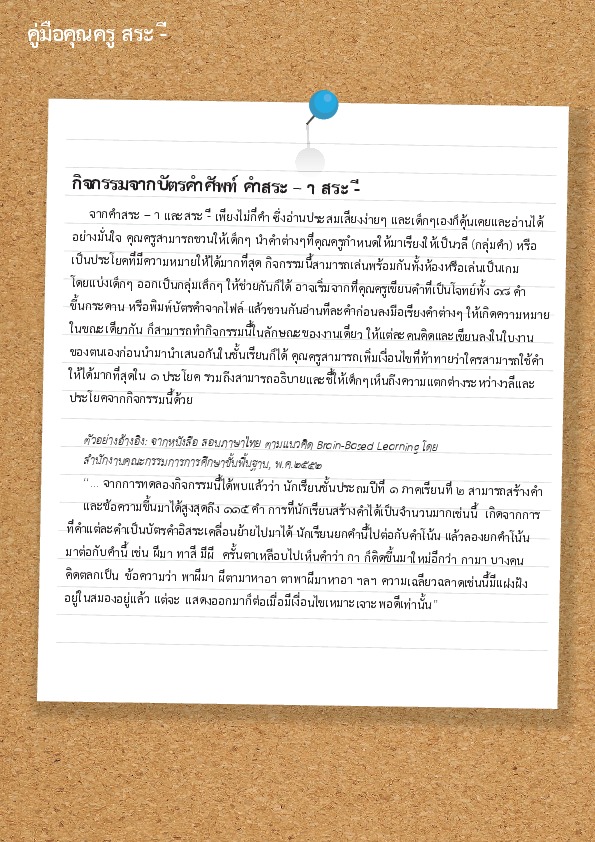 คู่มือคุณครู สระ -ี
กิจกรรมจากบัตรคำศัพท์ คำสระ – า สระ -ี
จากคำสระ – า และสระ -ี เพียงไม่กี่คำ ซึ่งอ่านประสมเสียงง่ายๆ และเด็กๆเองก็คุ้นเคยและอ่านได้
อย่างมั่นใจ คุณครูสามารถชวนให้เด็กๆ นำคำต่างๆที่คุณครูกำหนดให้มาเรียงให้เป็นวลี (กลุ่มคำ) หรือ
เป็นประโยคที่มีความหมายให้ได้มากที่สุด กิจกรรมนี้สามารถเล่นพร้อมกันทั้งห้องหรือเล่นเป็นเกม
โดยแบ่งเด็กๆ ออกเป็นกลุ่มเล็กๆ ให้ช่วยกันก็ได้ อาจเริ่มจากที่คุณครูเขียนคำที่เป็นโจทย์ทั้ง ๑๘ คำ
ขึ้นกระดาน หรือพิมพ์บัตรคำจากไฟล์ แล้วชวนกันอ่านทีละคำก่อนลงมือเรียงคำต่างๆ ให้เกิดความหมาย
ในขณะเดียวกัน ก็สามารถทำกิจกรรมนี้ในลักษณะของงานเดี่ยว ให้แต่ละคนคิดและเขียนลงในใบงาน
ของตนเองก่อนนำมานำเสนอกันในชั้นเรียนก็ได้ คุณครูสามารถเพิ่มเงื่อนไขที่ท้าทายว่าใครสามารถใช้คำ
ให้ได้มากที่สุดใน ๑ ประโยค รวมถึงสามารถอธิบายและชี้ให้เด็กๆเห็นถึงความแตกต่างระหว่างวลีและ
ประโยคจากกิจกรรมนี้ด้วย
ตัวอย่างอ้างอิง: จากหนังสือ สอนภาษาไทย ตามแนวคิด Brain-Based Learning โดย
สำนักงานคณะกรรมการการศึกษาขั้นพื้นฐาน, พ.ศ.๒๕๕๒
"... จากการทดลองกิจกรรมนี้ได้พบแล้วว่า นักเรียนชั้นประถมปีที่ ๑ ภาคเรียนที่ ๒ สามารถสร้างคำ
และข้อความขึ้นมาได้สูงสุดถึง ๑๑๕ คำ การที่นักเรียนสร้างคำได้เป็นจำนวนมากเช่นนี้ เกิดจากการ
ที่คำแต่ละคำเป็นบัตรคำอิสระเคลื่อนย้ายไปมาได้ นักเรียนยกคำนี้ไปต่อกับคำโน้น แล้วลองยกคำโน้น
มาต่อกับคำนี้ เช่น ผีมา ทาสี มีผี ครั้นตาเหลือบไปเห็นคำว่า กา ก็คิดขึ้นมาใหม่อีกว่า กามา บางคน
คิดตลกเป็น ข้อความว่า พาผีมา ผีตามาหาอา ตาพาผีมาหาอา ฯลฯ ความเฉลียวฉลาดเช่นนี้มีแฝงฝัง
อยู่ในสมองอยู่แล้ว แต่จะ แสดงออกมาก็ต่อเมื่อมีเงื่อนไขเหมาะเจาะพอดีเท่านั้น"